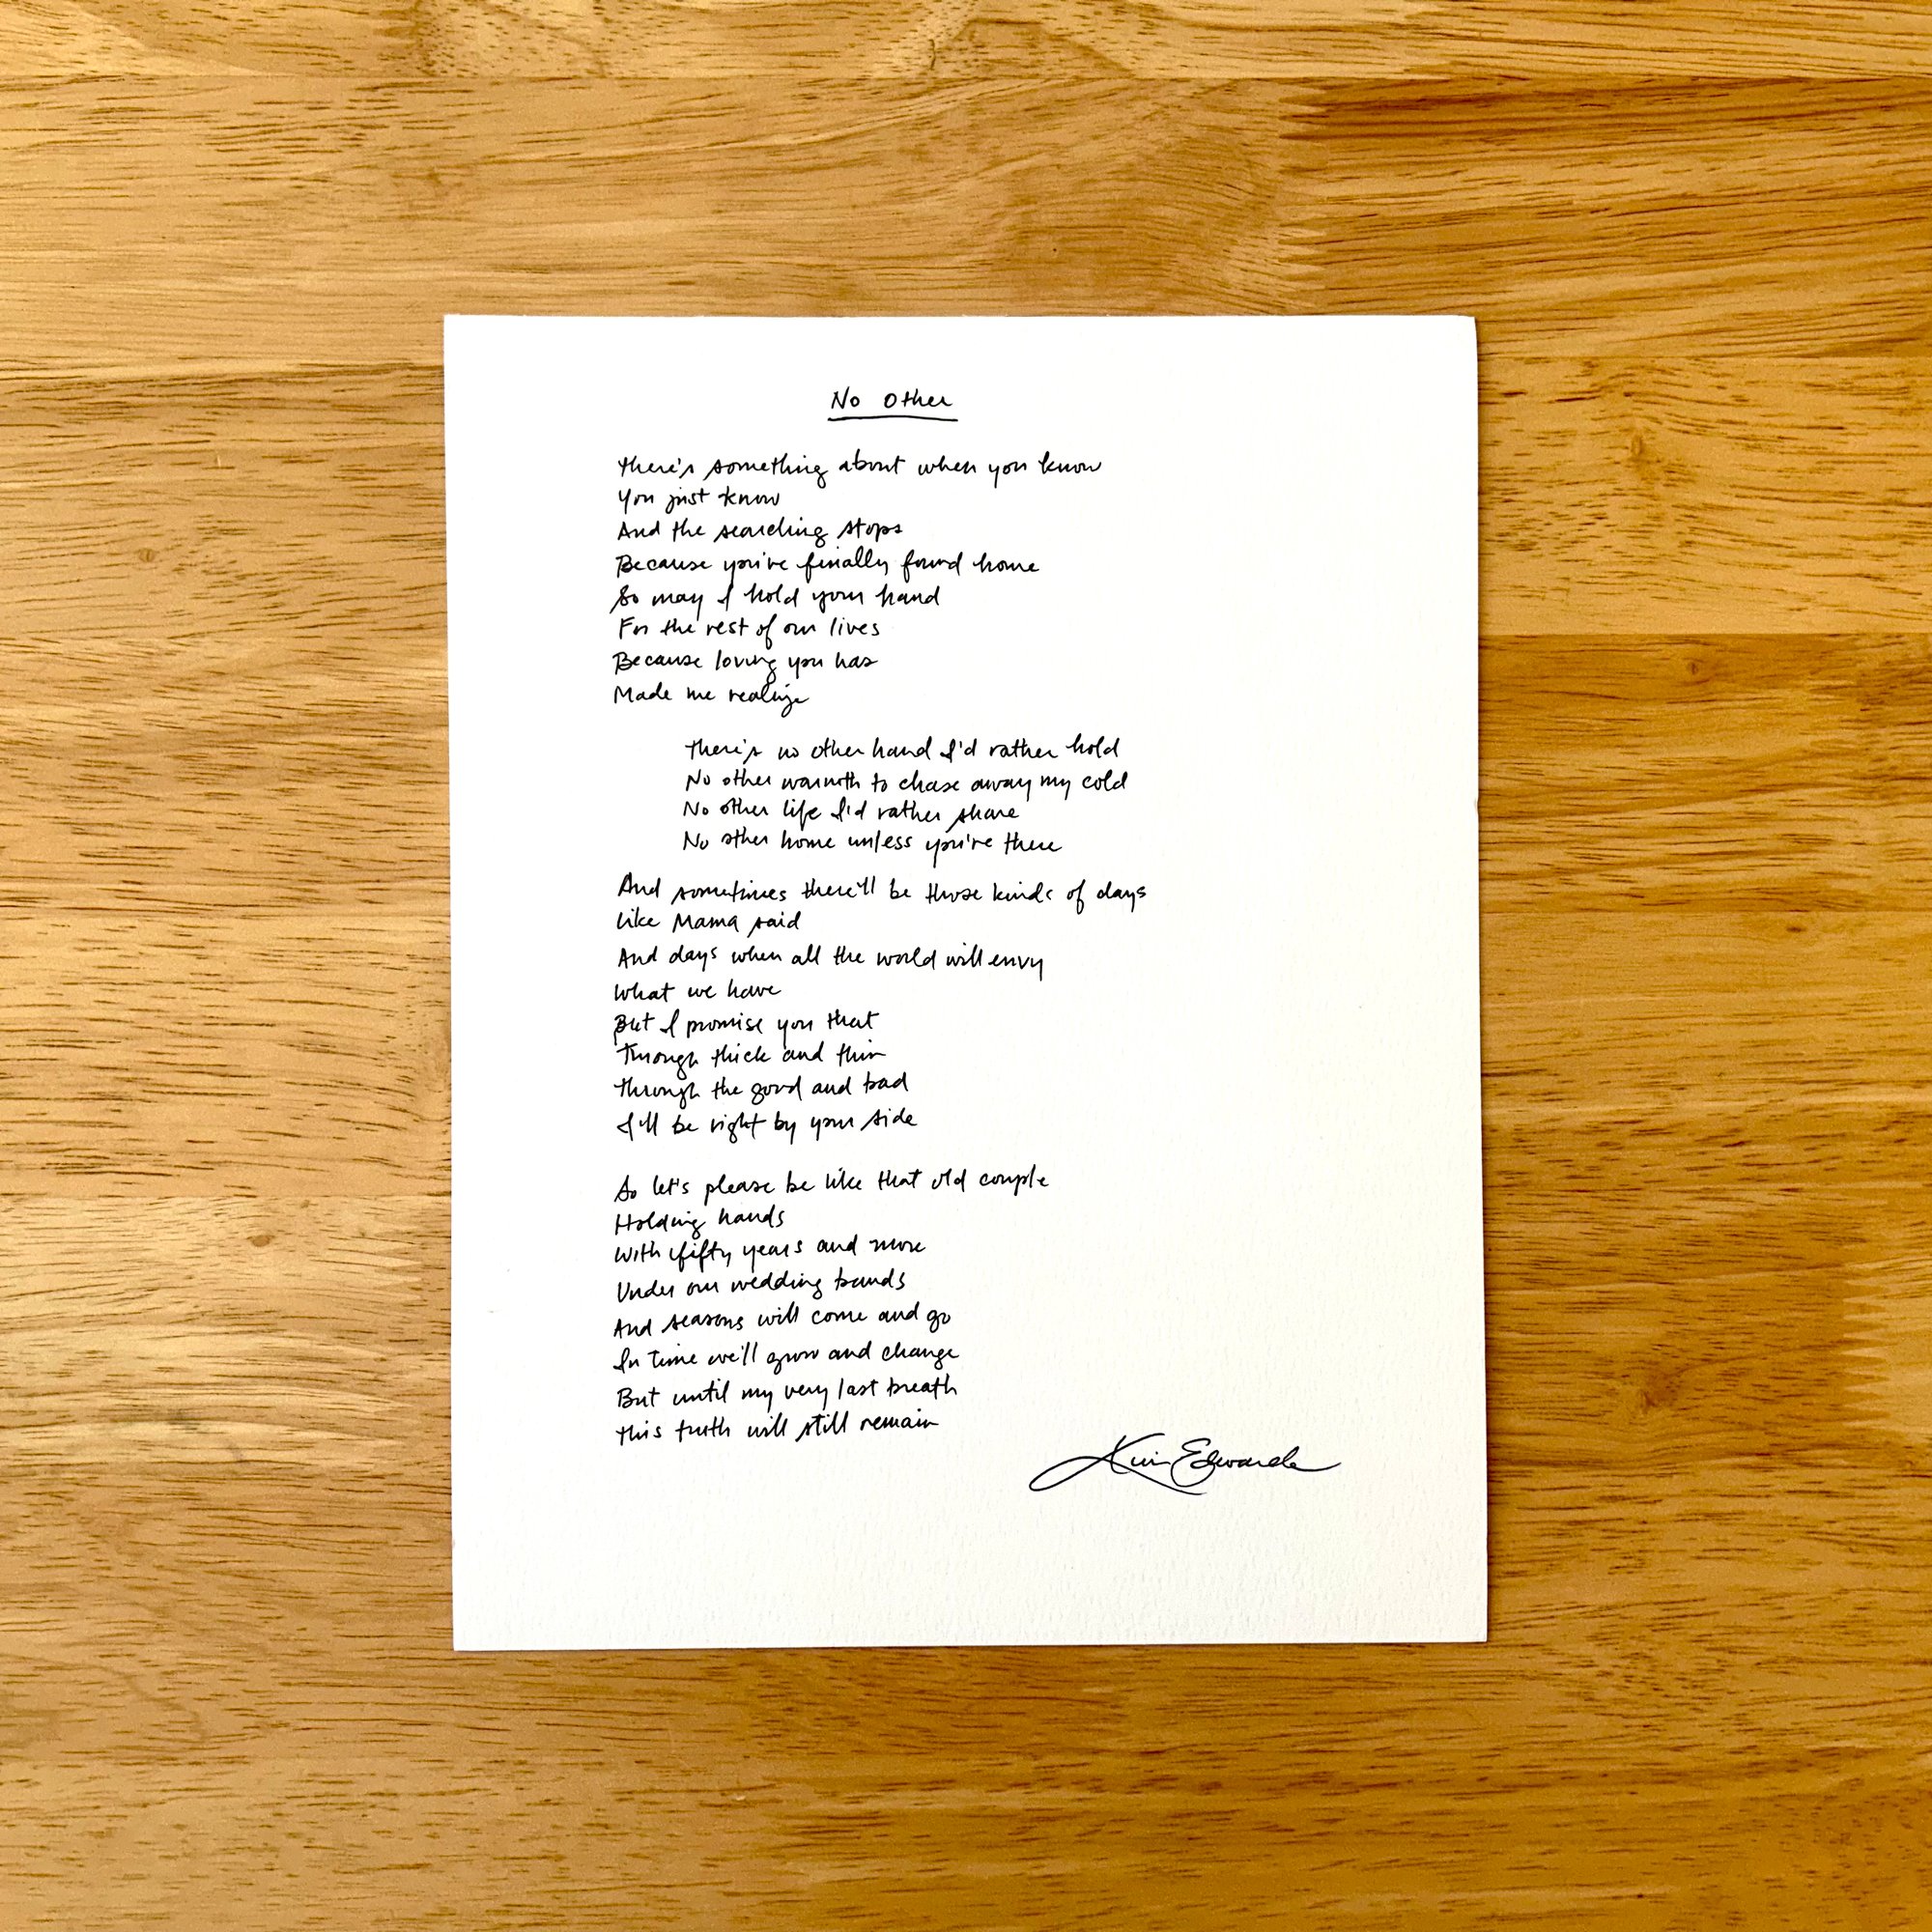 No Other
There's something about when you know
You just know
And the searching stops
Because you've finally found home
So may I hold your hand
For the rest of our lives
Because loving you has
Made me realize
There's no other hand I'd rather hold
No other warmth to chase away my cold
No other life I'd rather share
No other home unless you're there
And sometimes there'll be those kinds of days
Like Mama said
And days when all the world will envy
What we have
But I promise you that
Through thick and thin
Through the good and bad
I'll be right by your side
So let's please be like that old couple
Holding hands
With fifty years and more
Under our wedding bands
And seasons will come and go
In time we'll grow and change
But until my very last breath
This truth will still remain
Kim Edwards